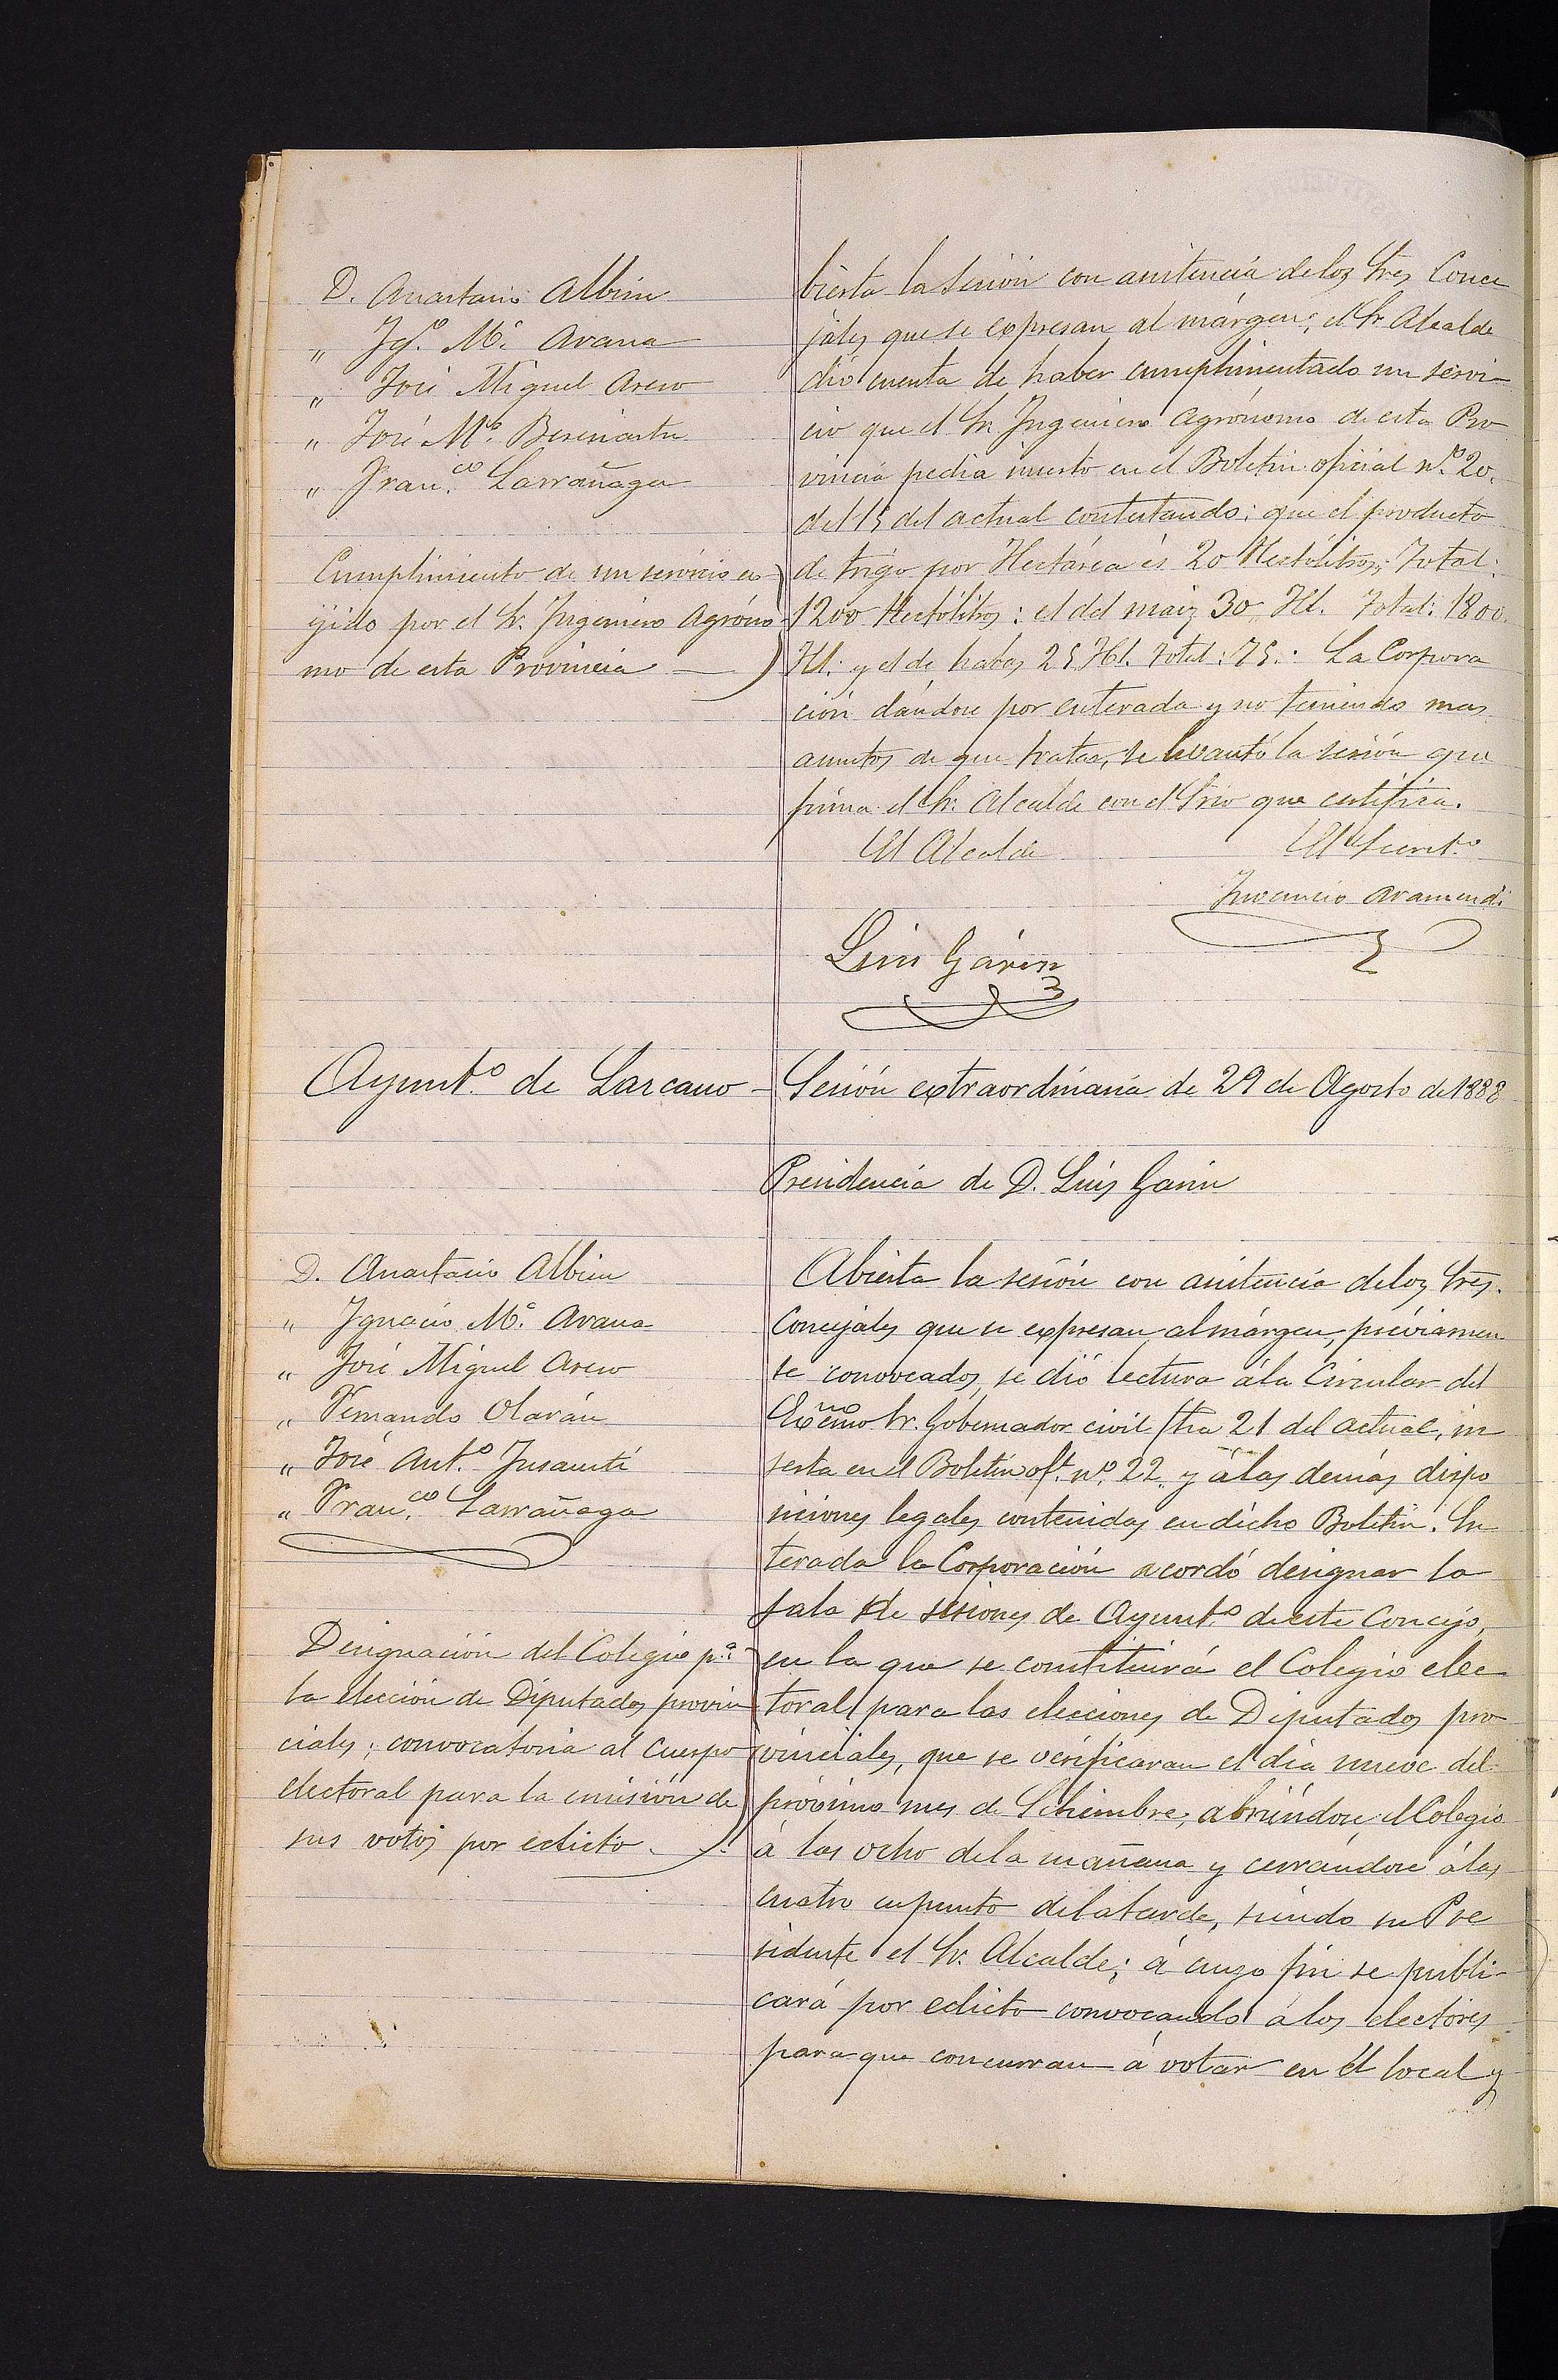 D. Anastasio Albisu
„ Ygº. Mª. Arana
„ José Miguel Aseso
„ José Mª. Beseinastu
„ Francº. Larrañaga
Cumplimiento de un servicio exi
gido por el Sr. Yngeniero Agróno
mo de esta Provincia
bierta la sesión con asistencia de los Sres Conce
jales que se expresan al márgen, el Sr Alcalde
dió cuenta de haber cumplimentado un servi-
cio que el Sr Yngeniero Agrónomo de esta Pro
vincia pedia inserto en el Boletin oficial nº. 20.
del 15 del actual contestando: que el producto
de trigo por Hectárea és 20 Hectólitros; Total:
1200 Hectólitros: el del maiz 30 Hl. Total: 1800.
Hl: y el de habas 25 Hl. Total: 75.: La Corpora
ción dándose por enterada y no teniendo mas
asuntos de que tratar, se levantó la sesión que
firma el Sr. Alcalde con el Srio que certifica.
El Alcalde
El Secretº
Juvencio Aramendi
Luis Garin
Ayuntº. de Lazcano – Sesión extraordinaria de 29 de Agosto de 1888
Presidencia de D. Luis Garin
D. Anastasio Albisu
„ Ygnacio Mª. Arana
„ José Miguel Aseso
„ Fernando Olarán
„ José Antº. Jusantí
„ Francº. Larrañaga
Designación del Colegio pª.
la elección de Diputados provin
ciales; convocatoria al Cuerpo
electoral para la emisión de
sus votos por edicto.
Abierta la sesión con asistencia de los Sres.
Concejales que se expresan al márgen, préviamen
te convocados, se dió lectura á la Circular del
Excmo Sr. Gobernador civil fha 21 del actual, in
serta en el Boletin ofl. nº. 22. y á las demás dispo
siciones legales contenidas en dicho Boletin. En
terada la Corporación acordó designar la
sala de sesiones de Ayuntº. de este Concejo,
en la que se constituirá el Colegio elec
toral para las elecciones de Diputados pro
vinciales, que se verificaran el dia nueve del
próximo mes de Setiembre, abriéndose el Colegio
á las ocho de la mañana y cerrándose á las
cuatro en punto de la tarde, siendo su Pre
sidente el Sr. Alcalde; á cuyo fin se publi-
cará por edicto convocando á los electores
para que concurran á votar en el local y